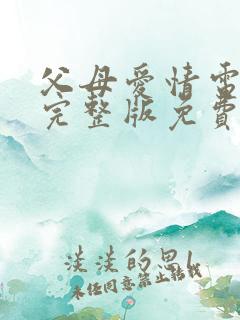 父母愛情電
完整版免費
淡淡的思
未经同意禁止转载